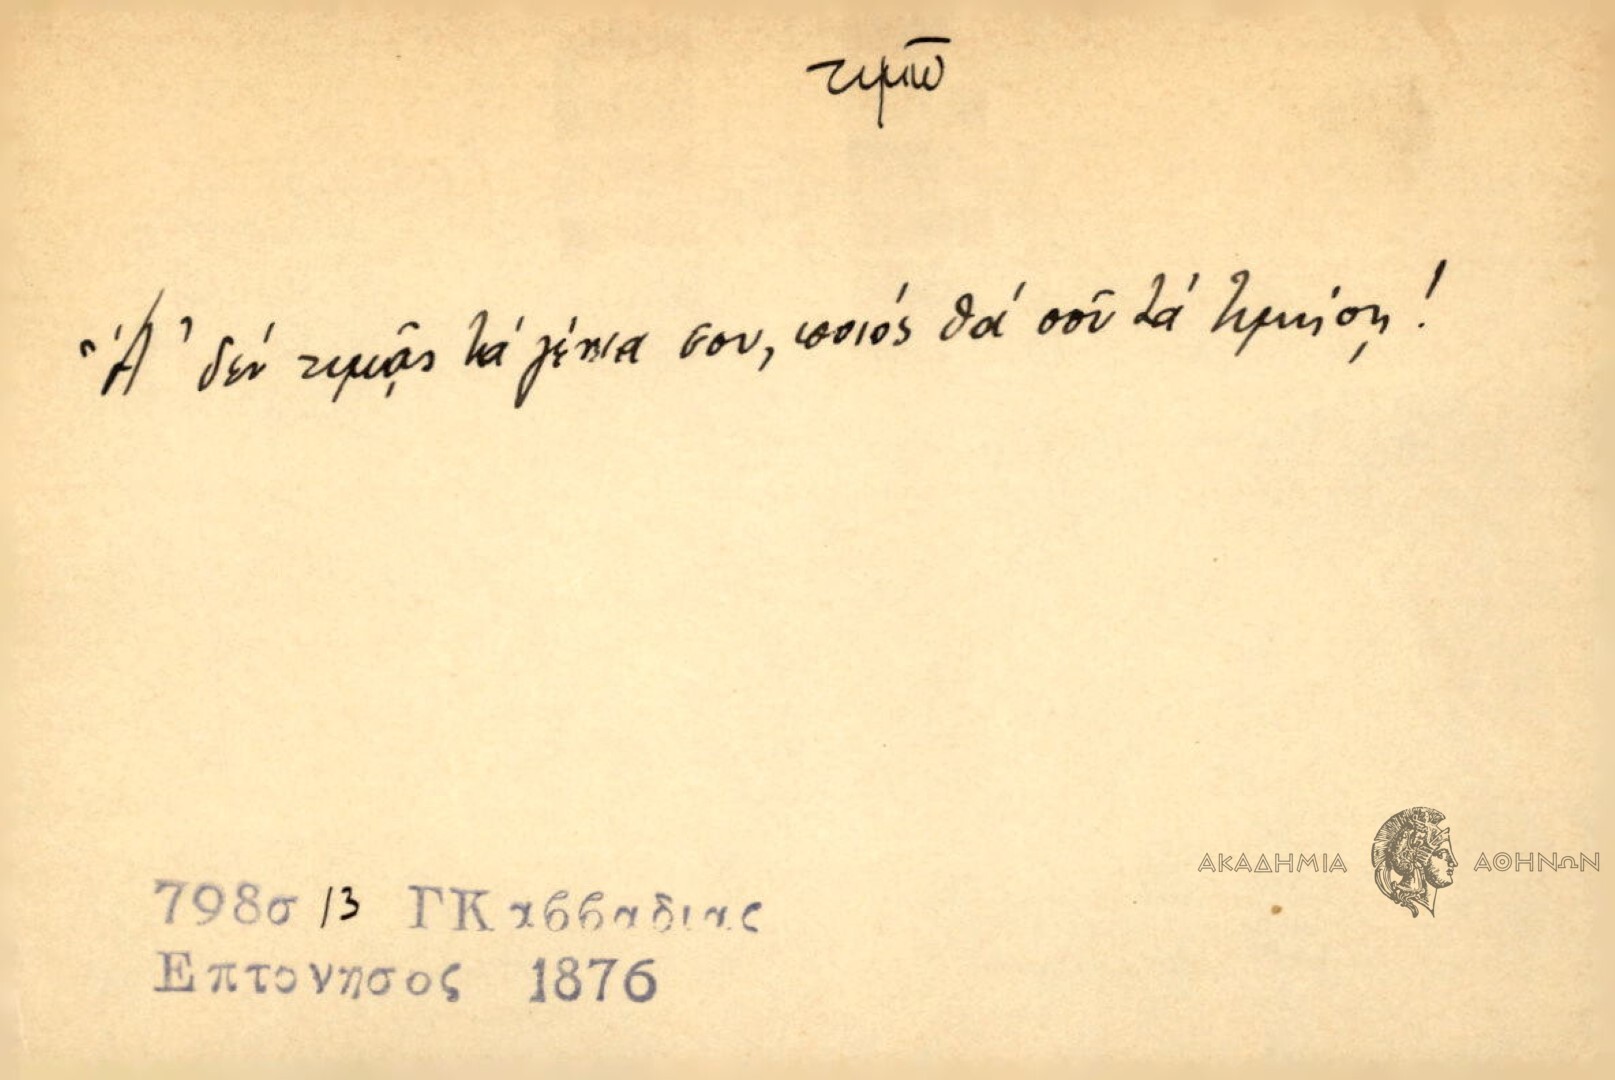 τιμῶ
"Ἄ' δέν τιμᾷς τά γένεια σου, ποιός θά σοῦ τά τιμήσῃ!
798σ 13 ΓΚαββαδιας
Επτονησος 1876
ΑΚΑΔΗΜΙΑ ΑΘΗΝΩΝ